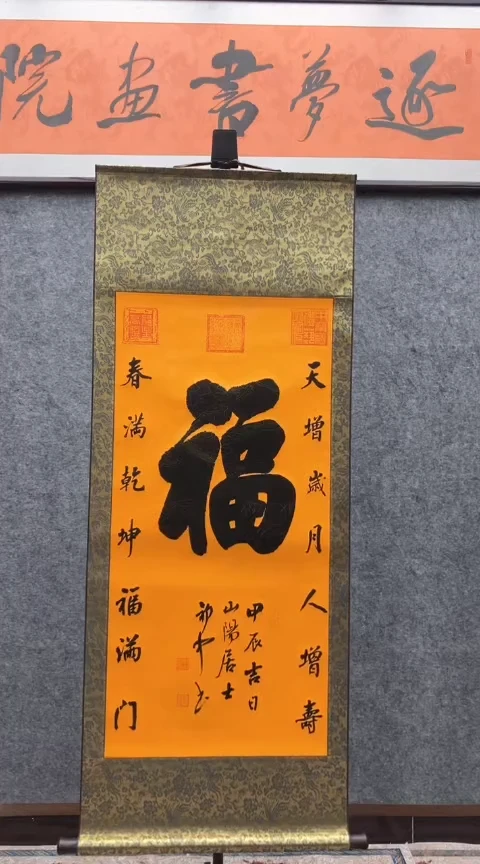 逐夢書画院
天增歲月人增壽
福
春满乾坤福满门
甲辰吉日
山陽居士